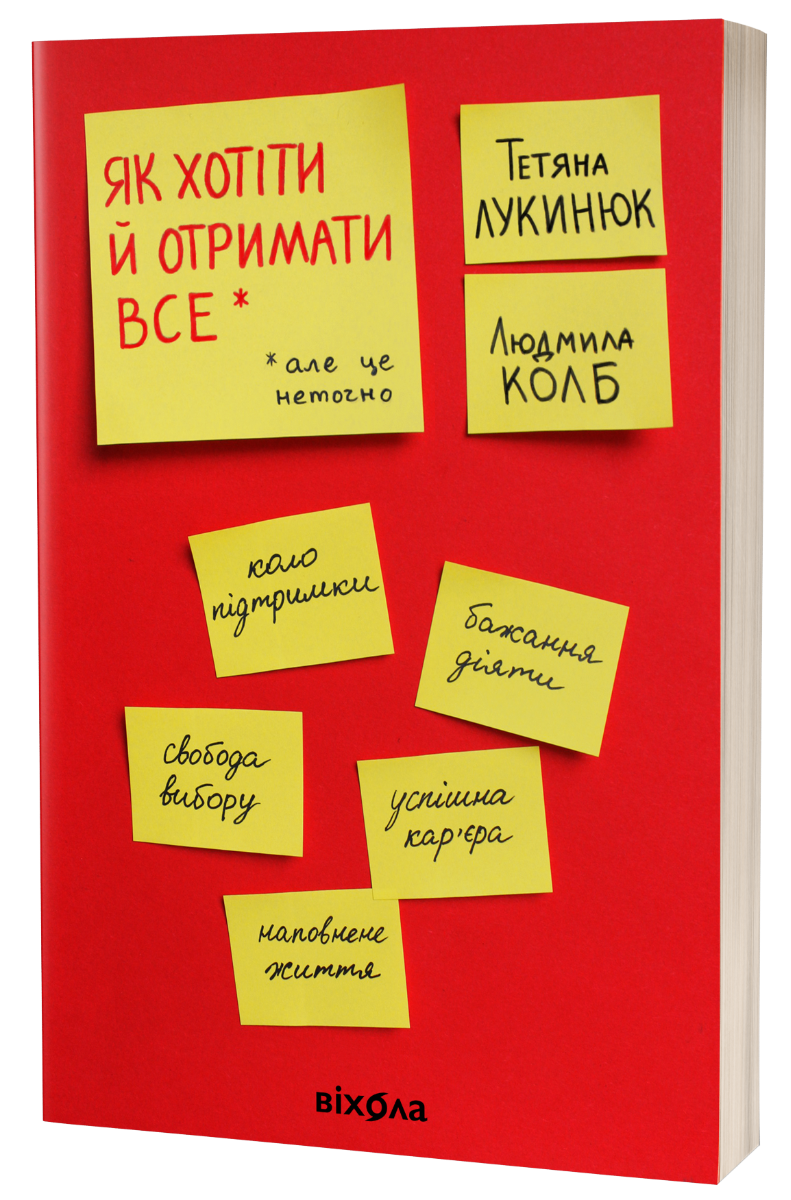 ЯК ХОТІТИ
Й ОТРИМАТИ
ВСЕ *
* але це
неточно
Тетяна
ЛУКИНЮК
Людмила
КОЛБ
коло
підтримки
бажання
діяти
свобода
вибору
успішна
кар'єра
наповнене
життя
віхола